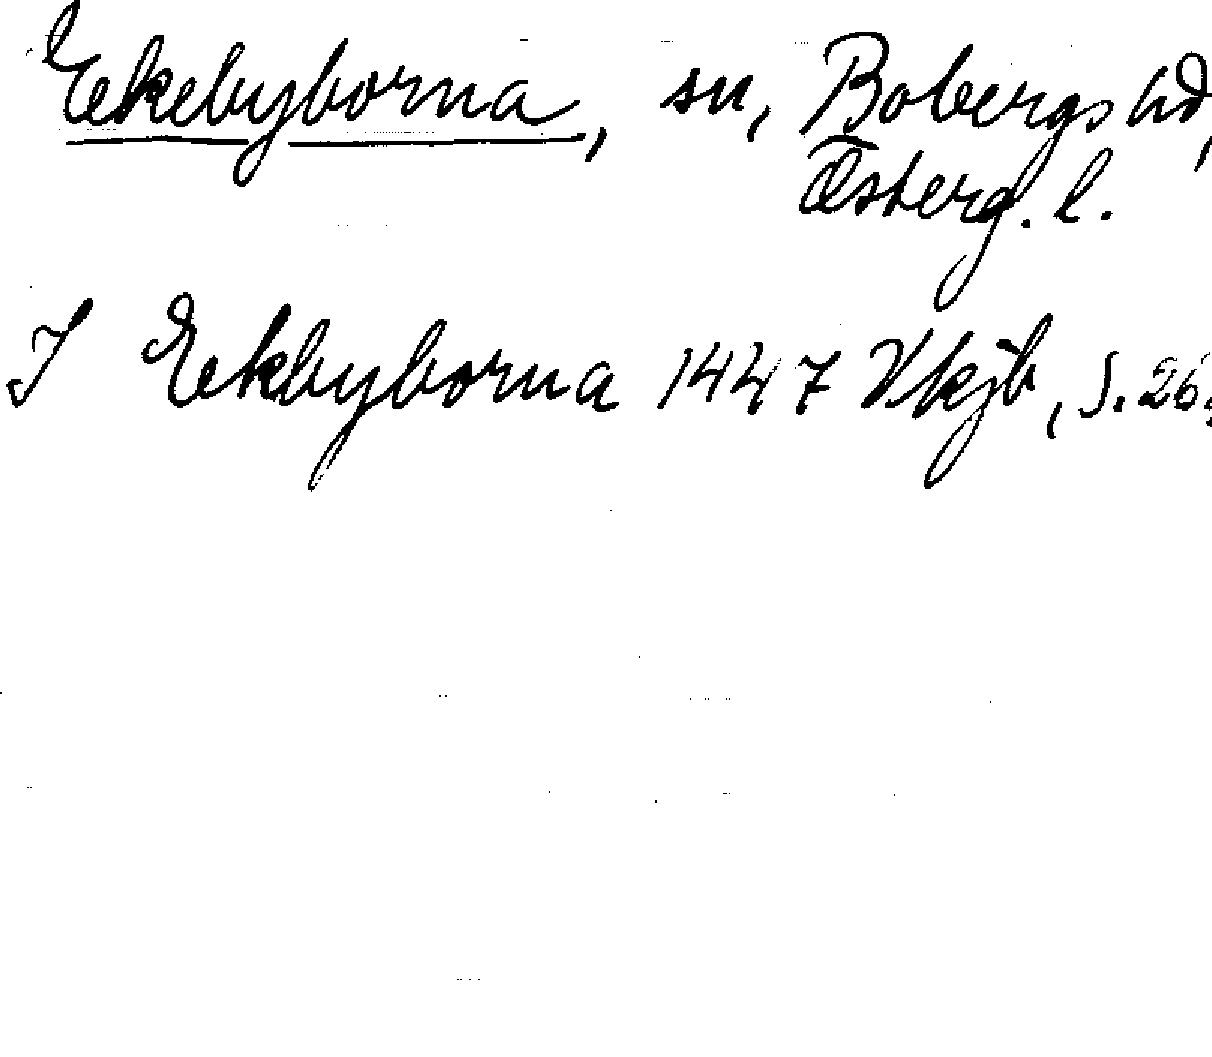 Ekebyborna, sn, Bobergs hd,
Österg. l.
I Ekbyborna 1447 Vkjb, s. 26.